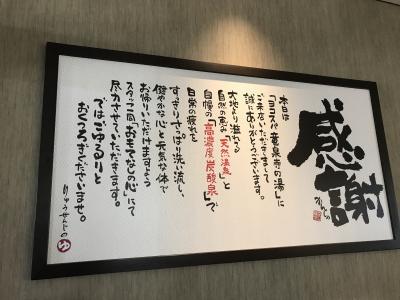 感謝
本日は
「ヨコスパ竜泉寺の湯」に
ご来店いただきまして
誠にありがとうございます。
大地より溢れる
自然の恵み「天然温泉」と
自慢の「高濃度炭酸泉」で
日常の疲れを
すっきりさっぱり洗い流し
健やかな心と元気な体で
お帰りいただけますよう
スタッフ一同「おもてなしの心」にて
尽力させていただきます。
ではごゆるりと
おくつろぎくださいませ。
りゅうせんじの ゆ